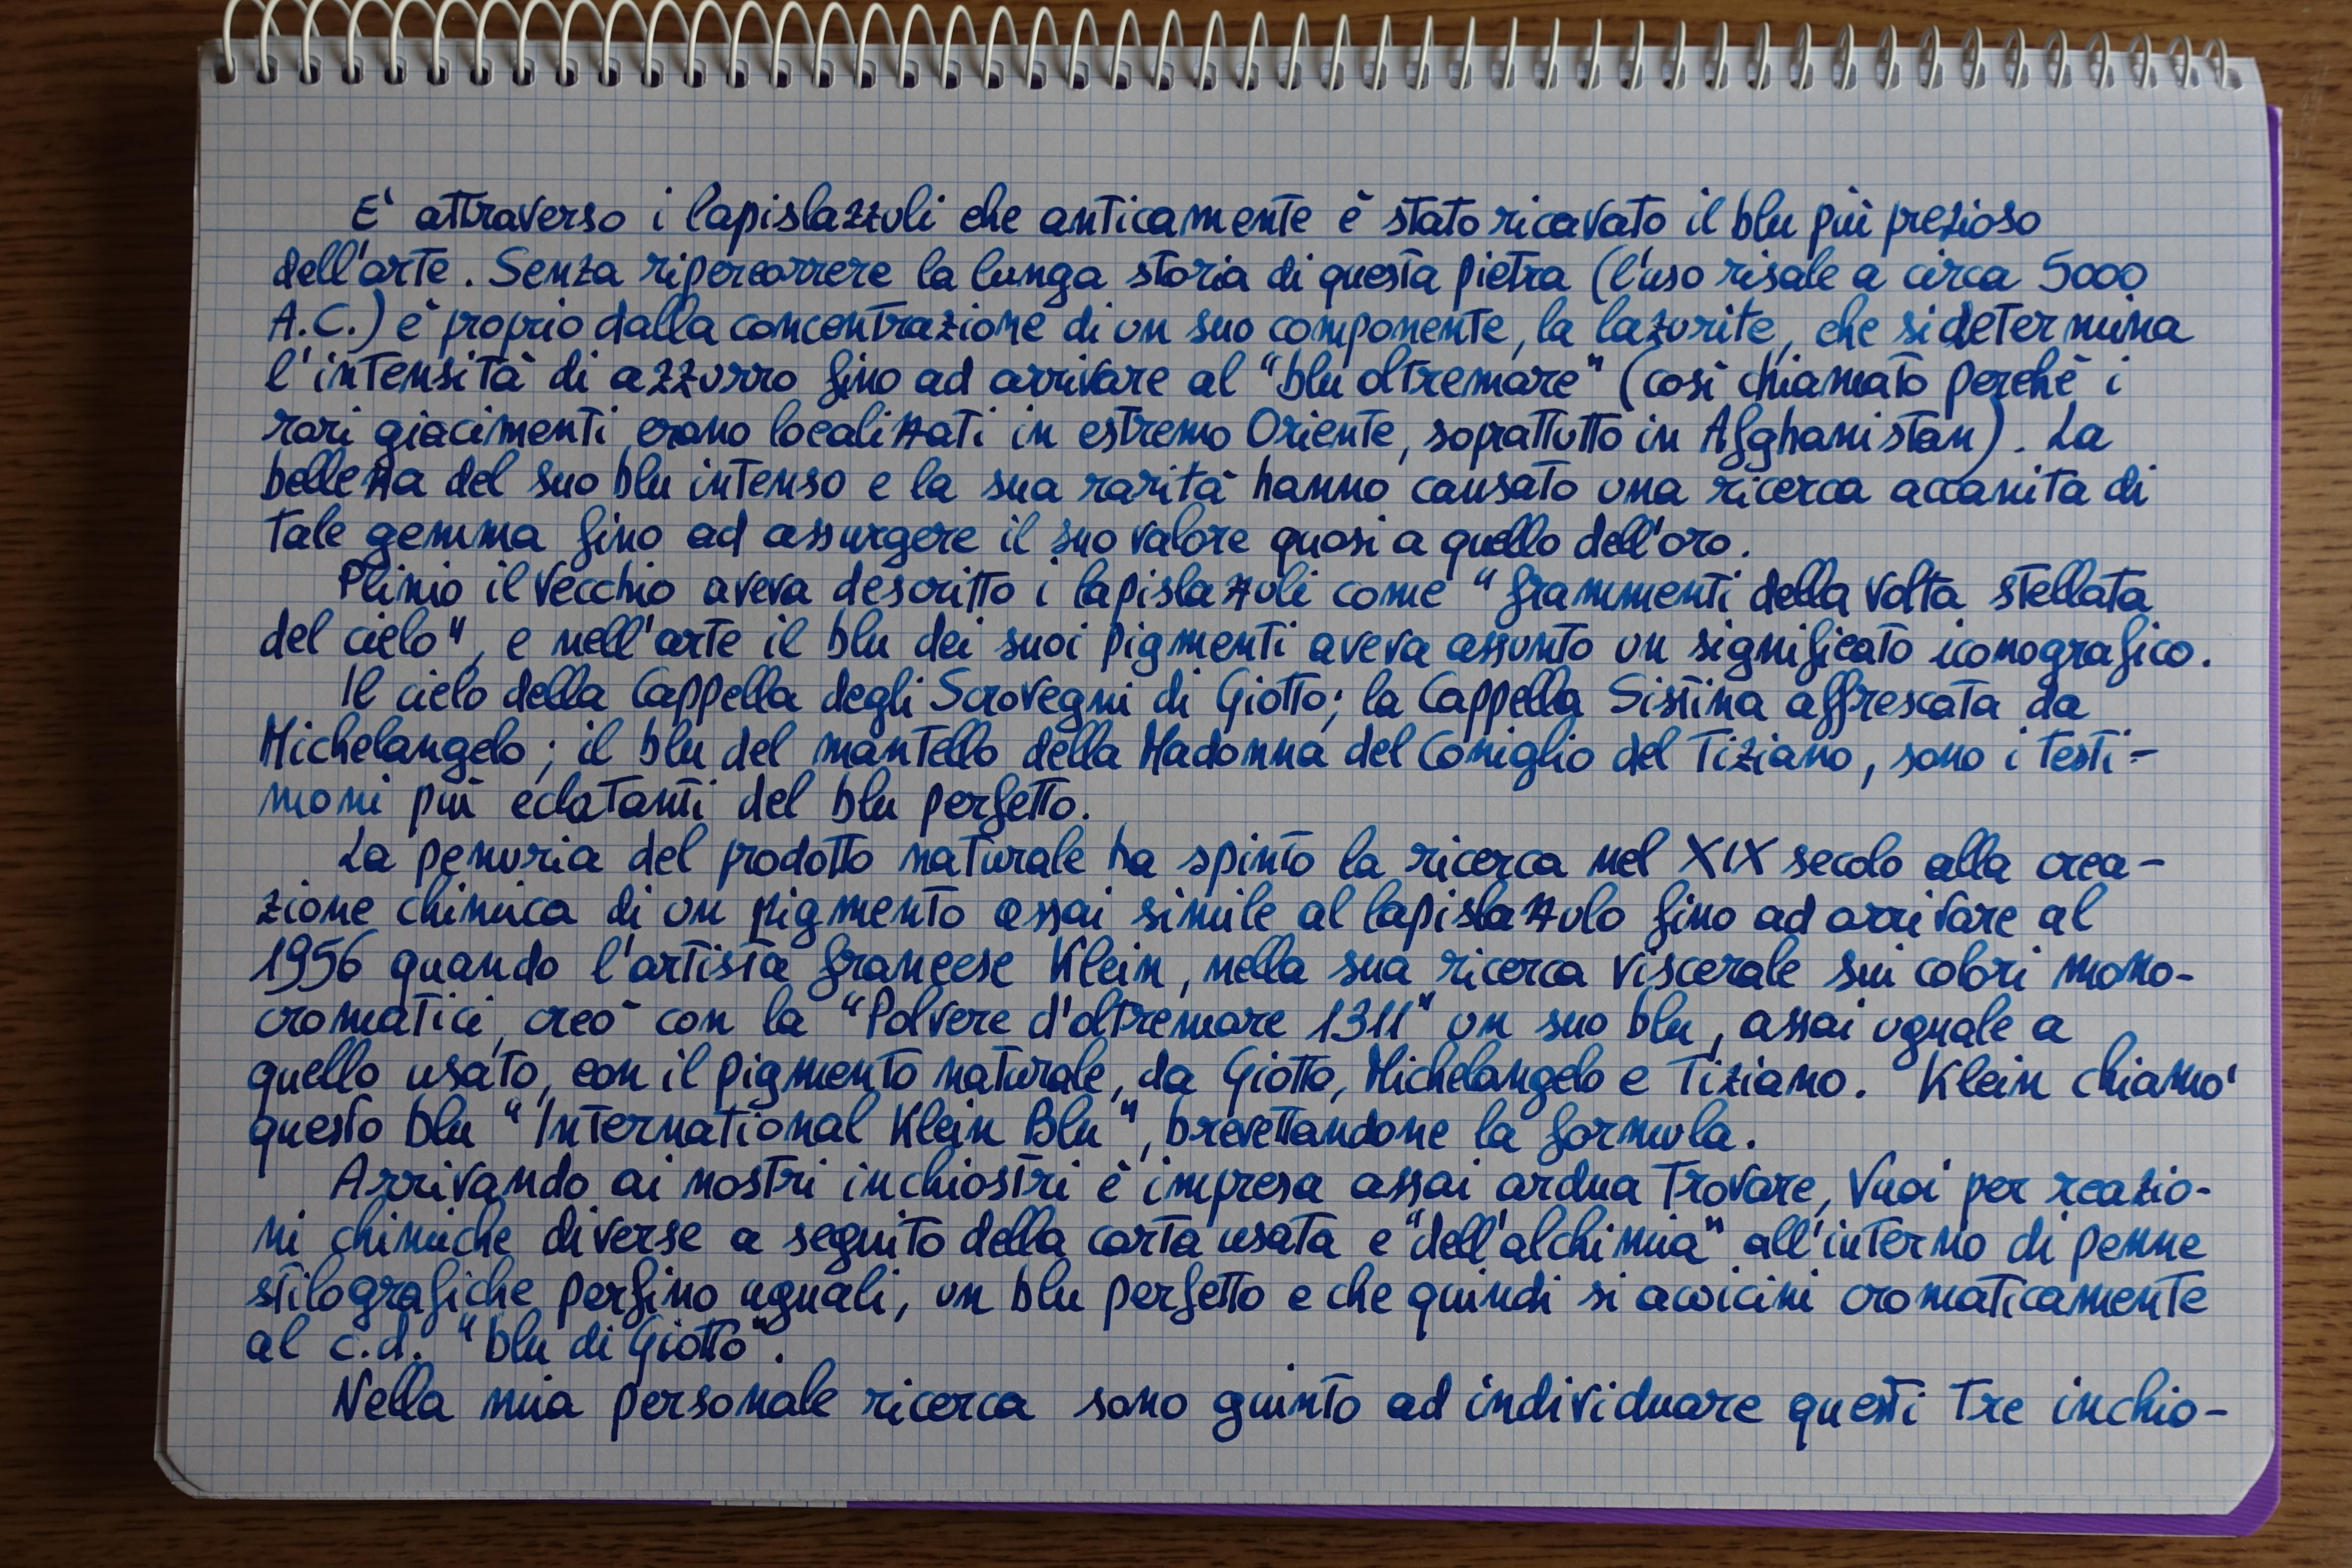 E' attraverso i lapislazzuli che anticamente è stato ricavato il blu più prezioso
dell'arte. Senza ripercorrere la lunga storia di questa pietra (l'uso risale a circa 5000
A.C.) è proprio dalla concentrazione di un suo componente, la lazurite, che si determina
l'intensità di azzurro fino ad arrivare al "blu oltremare" (così chiamato perchè i
rari giacimenti erano localizzati in estremo Oriente, soprattutto in Afghanistan). La
bellezza del suo blu intenso e la sua rarità hanno causato una ricerca accanita di
tale gemma fino ad assurgere il suo valore quasi a quello dell'oro.
Plinio il Vecchio aveva descritto i lapislazzuli come "frammenti della volta stellata
del cielo", e nell'arte il blu dei suoi pigmenti aveva assunto un significato iconografico.
Il cielo della Cappella degli Scrovegni di Giotto; la Cappella Sistina affrescata da
Michelangelo; il blu del mantello della Madonna del Coniglio del Tiziano, sono i testi-
moni più eclatanti del blu perfetto.
La penuria del prodotto naturale ha spinto la ricerca nel XIX secolo alla crea-
zione chimica di un pigmento assai simile al lapislazzulo fino ad arrivare al
1956 quando l'artista francese Klein, nella sua ricerca viscerale sui colori mono-
cromatici, creò con la "Polvere d'oltremare 1311" un suo blu, assai uguale a
quello usato, con il pigmento naturale, da Giotto, Michelangelo e Tiziano. Klein chiamo'
questo blu "International Klein Blu", brevettandone la formula.
Arrivando ai nostri inchiostri è impresa assai ardua trovare, vuoi per reazio-
ni chimiche diverse a seguito della carta usata e "dell'alchimia" all'interno di penne
stilografiche perfino uguali, un blu perfetto e che quindi si avvicini cromaticamente
al c.d. "blu di Giotto".
Nella mia personale ricerca sono giunto ad individuare questi tre inchio-